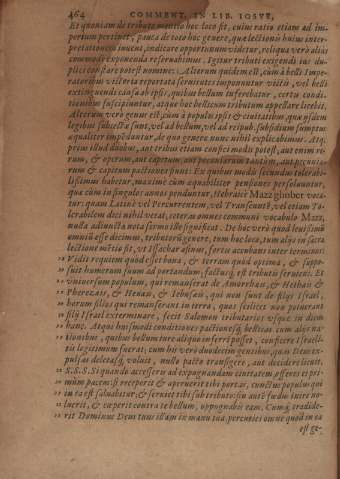 464 COMMENT. IN LIB. IOSVE,
Et quoniam de tributo mentio hoc loco fit, cuius ratio etiam ad im-
perium pertinet, pauca de toto hoc genere, quæ lectionis huius inter-
pretationem iuuent, indicare opportunum videtur, reliqua verò aliàs
commodè exponenda reseruabimus. Igitur tributi exigendi ius du-
plici constare potest nomine: Alterum quidem est, cùm à belli Impe-
ratoribus victis ac repor seruitutis imponuntur victis, vel belli
extinguendi causa ab ipsis, quibus bellum infertur, certis condi-
tionibus suscipiuntur, atque hoc bellicum tributum appellare licebit.
Alterum verò genus est, cùm à populis ipsis & ciuitatibus, quæ iisdem
legibus subiectæ sunt, vel ad bellum, vel ad reipub. subsidium sumptus
æqualiter imponuntur, de quo genere nunc nihil explicabimus. Atq;
prius illud duobus, aut tribus etiam confici modis potest, aut enim re-
rum, & operum, aut capitum, aut pecuniarum tantùm, aut pecunia-
rum & capitum pactiones sunt: Ex quibus modis secundus tolerabi-
lissimus habetur, maximè cum æquabiliter pensiones persoluuntur,
quæ cùm in singulos annos penduntur, Hebraicè Mazghober voca-
tur: quam Latinè vel Percurrentem, vel Transeuntē, vel etiam To-
lerabilem dici nihil vetat, ceteræ omnes communi vocabulo Mazz,
multa adiuncta nota sermonis significant. De hoc verò quod leuissimū
omniū esse decimus, tributoris genere, tum hoc loco, tum aliis in sacra
lectione mētio fit, vt Issachar asinus fortis accubans inter terminos:
Vidit requiem quod esset bona, & terram quòd optima, & suppo-
suit humerum suum ad portandum, factusq́; est tributis seruiens. Et
vniuersum populum, qui remanserat de Amorrhæis, & Hethæis &
Pherezæis, & Heuæis, & Iebusæis, qui non sunt de filijs Israel,
horum filios qui remanserant in terra, quos scilicet non potuerant
filij Israel exterminare, fecit Salomon tributarios vsque in diem
hanc. Atque huiusmodi conditiones pactionesq́; bellicas cum aliis na-
tionibus, quibus bellum iure aliquo inferri posset, conficere Israëli-
tis legitimum fuerat; cum his verò duodecim gentibus, quas Deus ex-
pulsas deletasq́; voluit, nullo pacto transigere, aut decidere licuit.
S.S.S. Si quando accesseris ad expugnandam ciuitatem, offeres ei pri-
mùm pacem: si receperit & aperuerit tibi portas, cunctus populus qui
in ea est saluabitur, & seruiet tibi sub tributo: sin autē fœdus inire no-
luerit, & cœperit contra te bellum, oppugnabis eam. Cumq́; tradide-
rit Dominus Deus tuus illam in manu tua, percuties omne quod in ea
est ge-